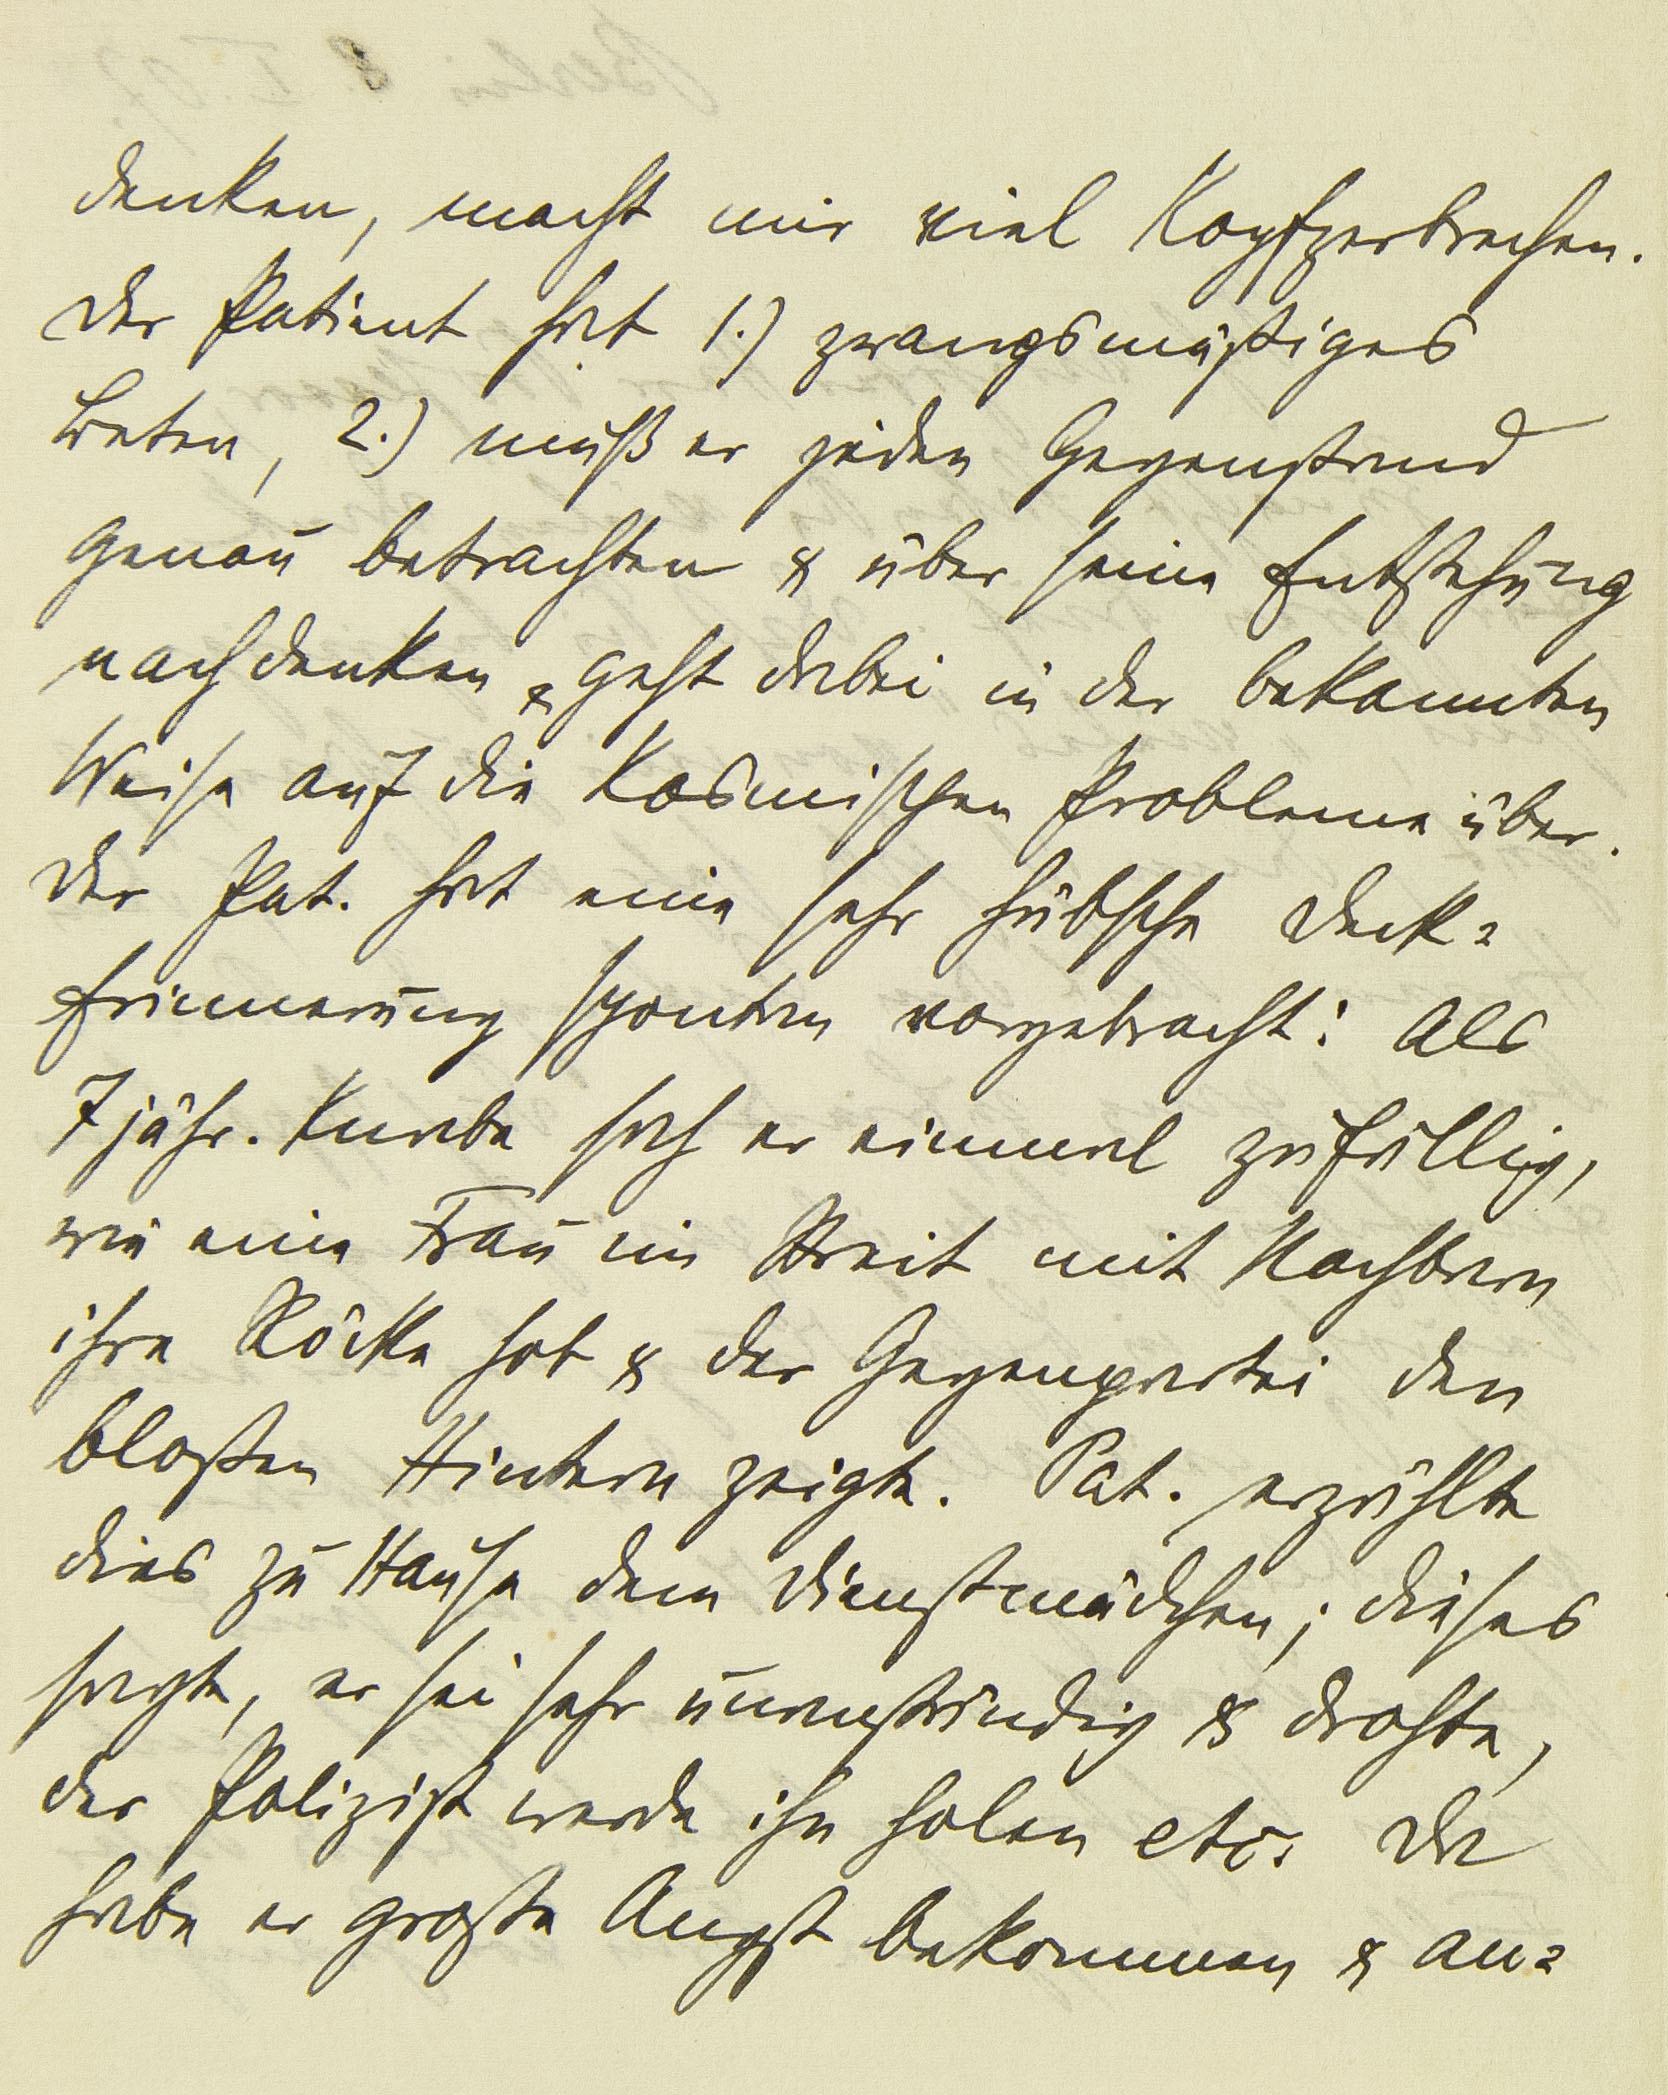 denken, macht mir viel Kopfzerbrechen.
Der Patient hat 1.) zwangsmäßiges
Beten, 2.) muß er jeden Gegenstand
genau betrachten & über seine Entstehung
nachdenken & geht dabei in der bekannten
Weise auf die kosmischen Probleme über.
Der Pat. hat eine sehr hübsche Deck-
Erinnerung spontan vorgebracht: Als
7jähr. Knabe sah er einmal zufällig,
wie eine Frau im Streit mit Nachbarn
ihre Röcke hob & der Gegenpartei den
bloßen Hintern zeigte. Pat. erzählte
dies zu Hause dem Dienstmädchen; dieses
sagte, er sei sehr unanständig & drohte,
der Polizist werde ihn holen etc. Da
habe er große Angst bekommen & an-